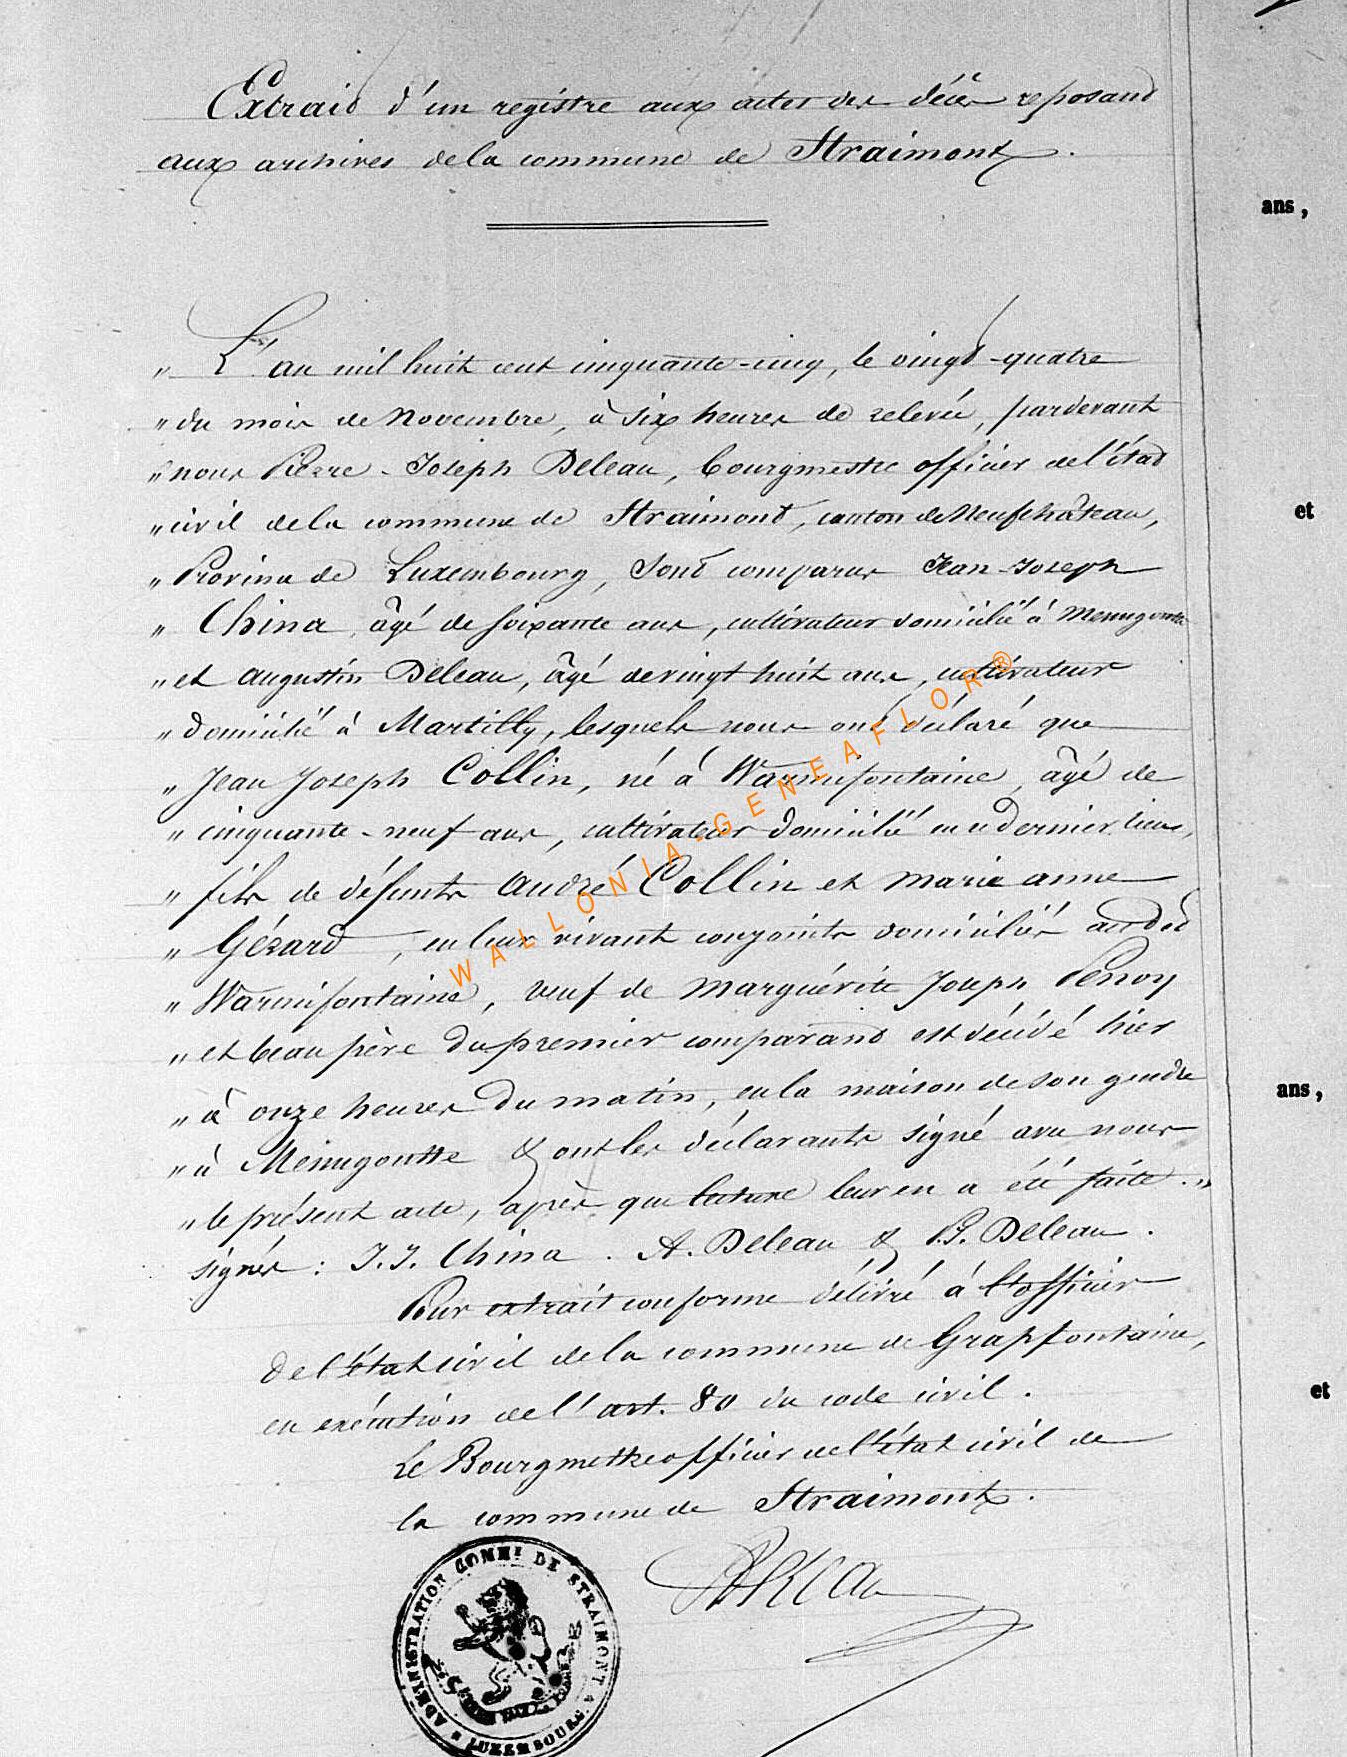 Extrait d'un registre aux actes des décès reposant
aux archives de la commune de Straimont.
ans,
„ L'an mil huit cent cinquante-cinq, le vingt-quatre
„ du mois de Novembre, à six heures de relevée, pardevant
„ nous Pierre-Joseph Deleau, bourgmestre officier de l'état
„ civil de la commune de Straimont, canton de Neufchâteau,
et
„ Province de Luxembourg, sont comparus Jean-Joseph
„ China, âgé de soixante ans, cultivateur domicilié à Menugoutte
„ et Augustin Deleau, âgé de vingt huit ans, cultivateur
„ domicilié à Martilly, lesquels nous ont déclaré que
„ Jean Joseph Collin, né à Warmifontaine, âgé de
„ cinquante-neuf ans, cultivateur domicilié en ce dernier lieu,
„ fils de défunts André Collin et Marie anne
„ Gérard, en leur vivant conjoints domiciliés audit
„ Warmifontaine, veuf de Marguérite Joseph Penoy
„ et beau père du premier comparant est décédé hier
„ à onze heures du matin, en la maison de son gendre
ans,
„ à Menugoutte & ont les déclarants signé avec nous
„ le présent acte, après que lecture leur en a été faite. „
signés : J. J. China. A. Deleau & P. J. Deleau.
Pour extrait conforme délivré à l'officier
de l'état civil de la commune de Grapfontaine,
en exécution de l'art. 80 du code civil.
et
Le Bourgmestre officier de l'état civil de
la commune de Straimont.
ADMINISTRATION COMM! DE STRAIMONT
LUXEMBOURG
WALLONIA-GENEAFLOR®